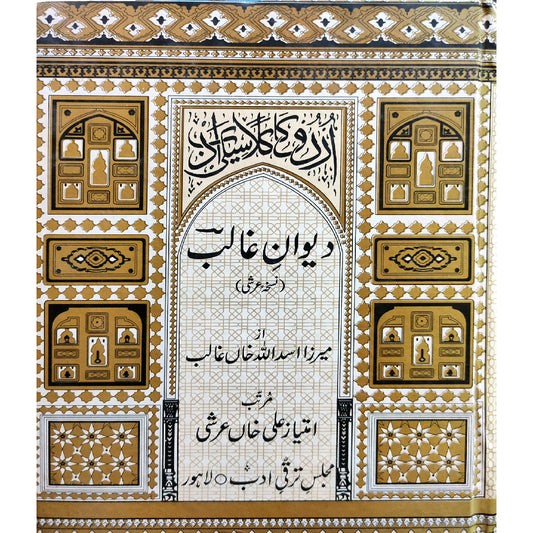 اردو کا کلاسیکی ادب
دیوانِ غالب
(نسخۂ عرشی)
از
میرزا اسد اللہ خاں غالب
مرتبہ
امتیاز علی خاں عرشی
مجلس ترقیِ ادب ○ لاہور